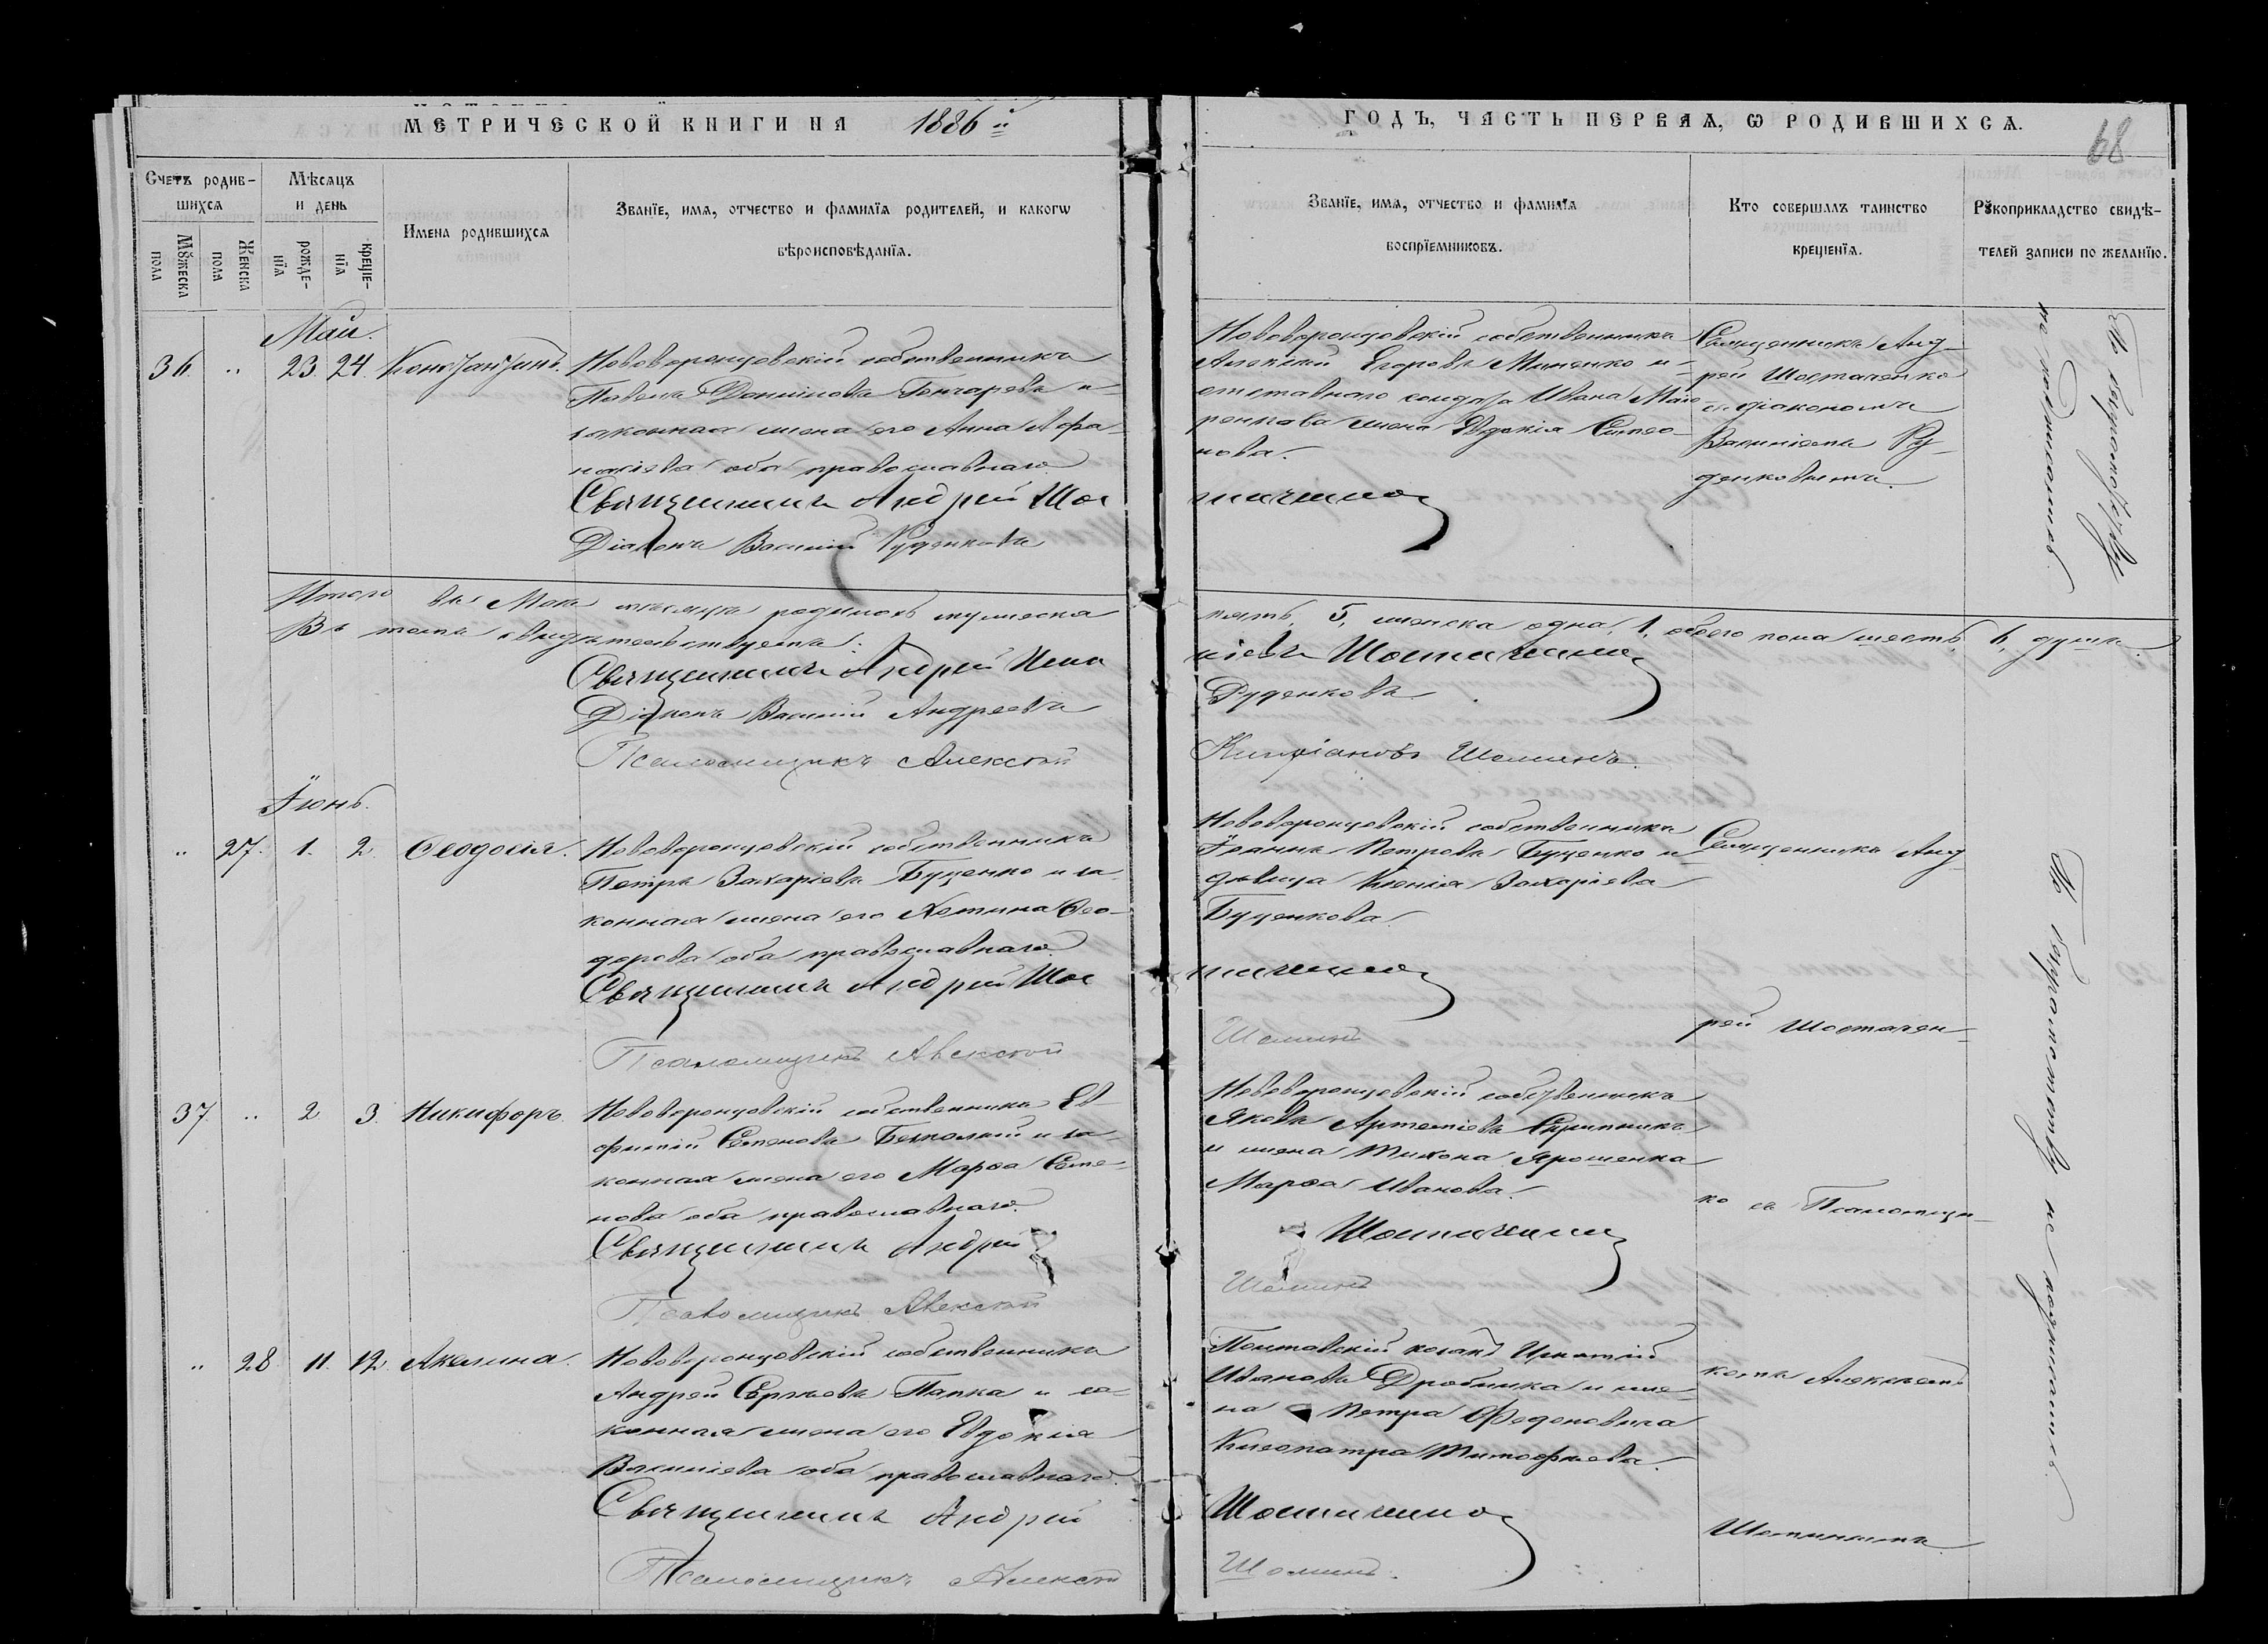 МЕТРИЧЕСКОЙ КНИГИ НА 1886 й
ГОДЪ, ЧАСТЬ ПЕРВАЯ, Ѡ РОДИВШИХСЯ.
68
Счетъ родив-
шихся
Мꙋжеска
пола
Женска
пола
Мѣсяцъ
и день
рожде-
нїя
креще-
нїя
Имена родившихся
Званїе, имя, отчество и фамилїя родителей, и какогѡ
вѣроисповѣданїя.
Званїе, имя, отчество и фамилїя
воспрїемниковъ.
Кто совершалъ таинство
крещенїя.
Рꙋкоприкладство свидѣ-
телей записи по желанїю.
Май.
36. " 23. 24. Константинъ.
Нововоронцовскій собственникъ
Павелъ Даніиловъ Гончаровъ и
законная жена его Анна Афа-
насіева оба православнаго.
Священникъ Андрей Шос
Діаконъ Василій Руденковъ
Нововоронцовскій собственникъ
Алексѣй Егоровъ Миненко и
отставнаго солдата Ивана
жена Евдокія Симео-
нова.
таченко
Священникъ Анд-
рей Шостаченко
съ діакономъ
Василіемъ Ру-
денковымъ.
По безграмотству
не подписался
Итого въ Маѣ мѣсяцѣ родилось мужеска
пять, 5, женска одна, 1, обоего пола шесть, 6, душъ.
Въ томъ свидѣтельствуемъ:
Священникъ Андрей
Шостаченко
Діаконъ Василій Андреевъ
Руденковъ
Псаломщикъ Алексѣй
Кипріановъ Шоминъ.
Іюнь.
" 27. 1. 2. Ѳеодосія.
Нововоронцовскій собственникъ
Петръ Захаріевъ Буценко и за-
конная жена его Ѳео-
дорова оба православнаго.
Священникъ Андрей Шос
Псаломщикъ Алексѣй
Нововоронцовскій собственникъ
Іоаннъ Петровъ Буценко и
дѣвица Ксенія Захаріева
Буценкова.
таченко
Шоминъ
Священникъ Анд-
рей Шостачен-
37. " 2 3. Никифоръ.
Нововоронцовскій собственникъ Ев-
фимій Семеновъ и за-
конная жена его Марѳа Семе-
нова оба православнаго.
Священникъ Андрей
Псаломщикъ Алексѣй
Нововоронцовскій собственникъ
Яковъ Артеміевъ Скрипникъ
и жена Тихона Ярошенка
Марѳа Иванова.
Шостаченко
Шоминъ
ко съ Псаломщи-
" 28 11. 12. Акилина.
Нововоронцовскій собственникъ
Андрей Сергѣевъ Папка и за-
конная жена его Евдокія
Василіева оба православнаго.
Священникъ Андрей
Псаломщикъ Алексѣй
Полтавскій козакъ Игнатій
Ивановъ и же-
на Петра Феденовича
Клеопатра Тимофѣева.
Шостаченко
Шоминъ.
комъ Алексѣемъ
Шоминымъ.
По безграмотству не подписались